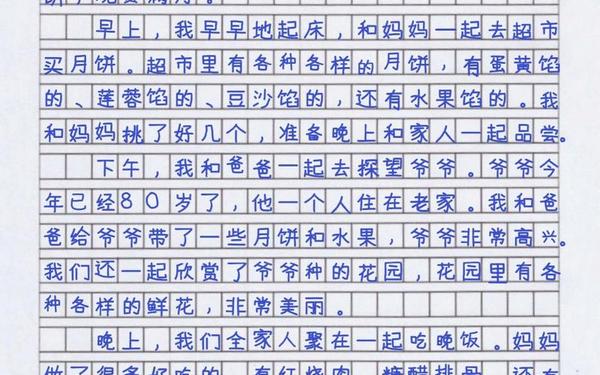 早上，我早早地起床，和妈妈一起去超市
买月饼。超市里有各种各样的月饼，有蛋黄馅
的、莲蓉馅的、豆沙馅的，还有水果馅的。我
和妈妈挑了好几个，准备晚上和家人一起品尝。
下午，我和爸爸一起去探望爷爷。爷爷今
年已经80岁了，他一个人住在老家。我和爸
爸给爷爷带了一些月饼和水果，爷爷非常高兴。
我们还一起欣赏了爷爷种的花园，花园里有各
种各样的鲜花，非常美丽。
晚上，我们全家人聚在一起吃晚饭。妈妈
做了很多好吃的，有红烧肉、糖醋排骨、还有